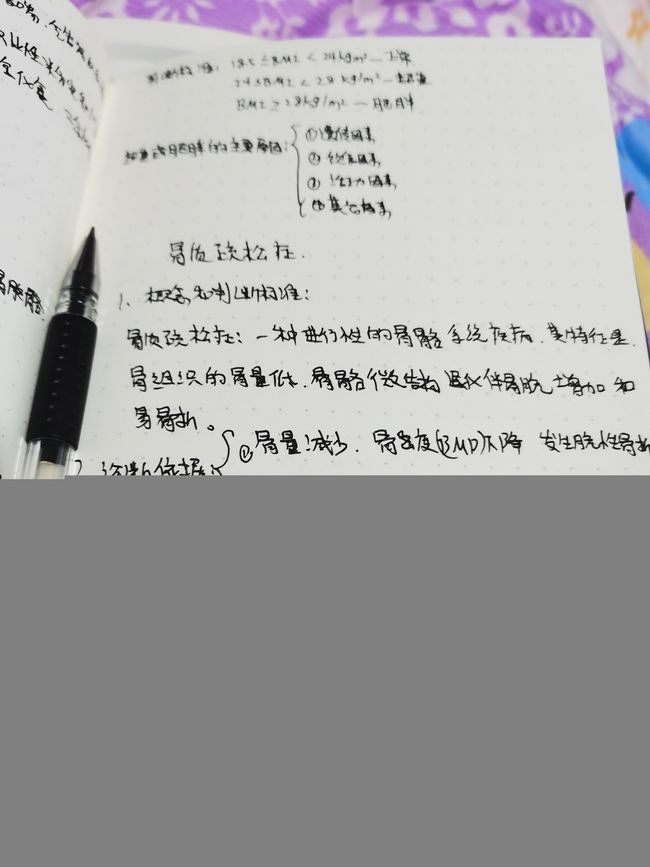 判断标准: 18.5≤BMI<24kg/m² — 正常
24≤BMI<28kg/m² — 超重
BMI≥28kg/m² — 肥胖
超重或肥胖的主要原因:
①遗传因素
②饮食因素
③行为因素
④其它因素
骨质疏松症.
1. 概念和判断标准:
骨质疏松症: 一种进行性的骨骼系统疾病. 其特征是
骨组织的骨量低. 骨骼微结构退化伴骨脆增加和
易骨折。
2 诊断依据:
①骨量减少. 骨密度(BMD)下降 发生脆性骨折